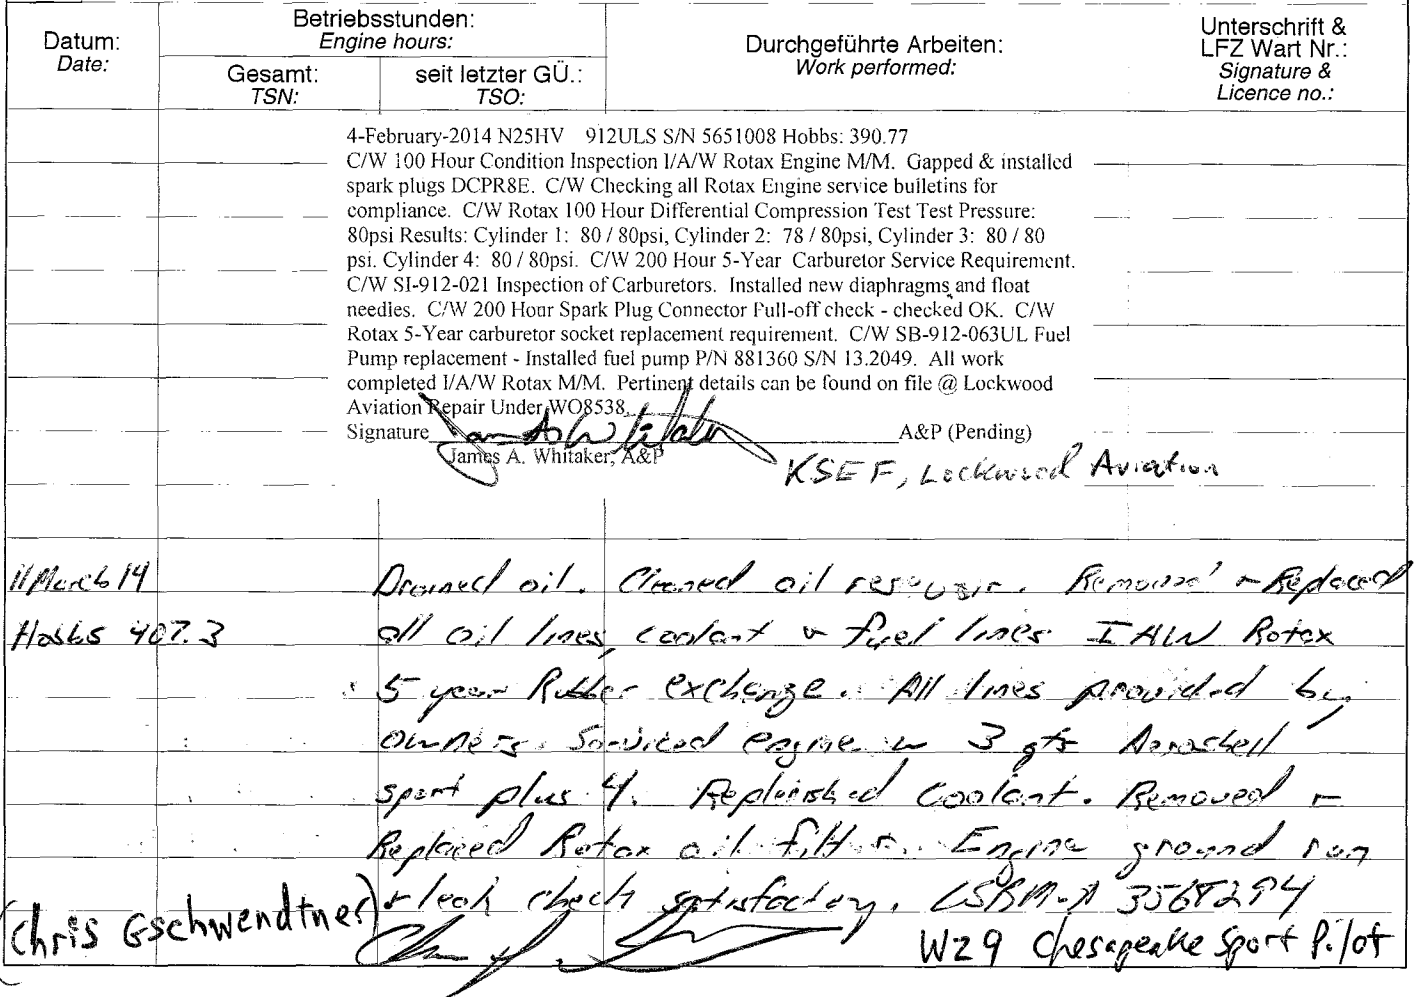 Datum:
Date:
Betriebsstunden:
Engine hours:
Gesamt:
TSN:
seit letzter GÜ.:
TSO:
Durchgeführte Arbeiten:
Work performed:
Unterschrift &
LFZ Wart Nr.:
Signature &
Licence no.:
4-February-2014 N25HV 912ULS S/N 5651008 Hobbs: 390.77
C/W 100 Hour Condition Inspection I/A/W Rotax Engine M/M. Gapped & installed
spark plugs DCPR8E. C/W Checking all Rotax Engine service bulletins for
compliance. C/W Rotax 100 Hour Differential Compression Test Test Pressure:
80psi Results: Cylinder 1: 80 / 80psi, Cylinder 2: 78 / 80psi, Cylinder 3: 80 / 80
psi. Cylinder 4: 80 / 80psi. C/W 200 Hour 5-Year Carburetor Service Requirement.
C/W SI-912-021 Inspection of Carburetors. Installed new diaphragms and float
needles. C/W 200 Hour Spark Plug Connector Pull-off check - checked OK. C/W
Rotax 5-Year carburetor socket replacement requirement. C/W SB-912-063UL Fuel
Pump replacement - Installed fuel pump P/N 881360 S/N 13.2049. All work
completed I/A/W Rotax M/M. Pertinent details can be found on file @ Lockwood
Aviation Repair Under WO8538.
Signature A&P (Pending)
James A. Whitaker, A&P
KSEF, Lockwood Aviation
11 March 14 Drained oil. Cleaned oil reservoir. Removed & Replaced
Hobbs 407.3 all oil lines, coolant & fuel lines IAW Rotax
5 year Rubber exchange. All lines provided by
owners. Serviced engine w 3 qts Aeroshell
sport plus 4. Replenished coolant. Removed &
Replaced Rotax oil filter. Engine ground run
& leak check satisfactory. LSRM-A 3568294
(Chris Gschwendtner)
W29 Chesapeake Sport Pilot